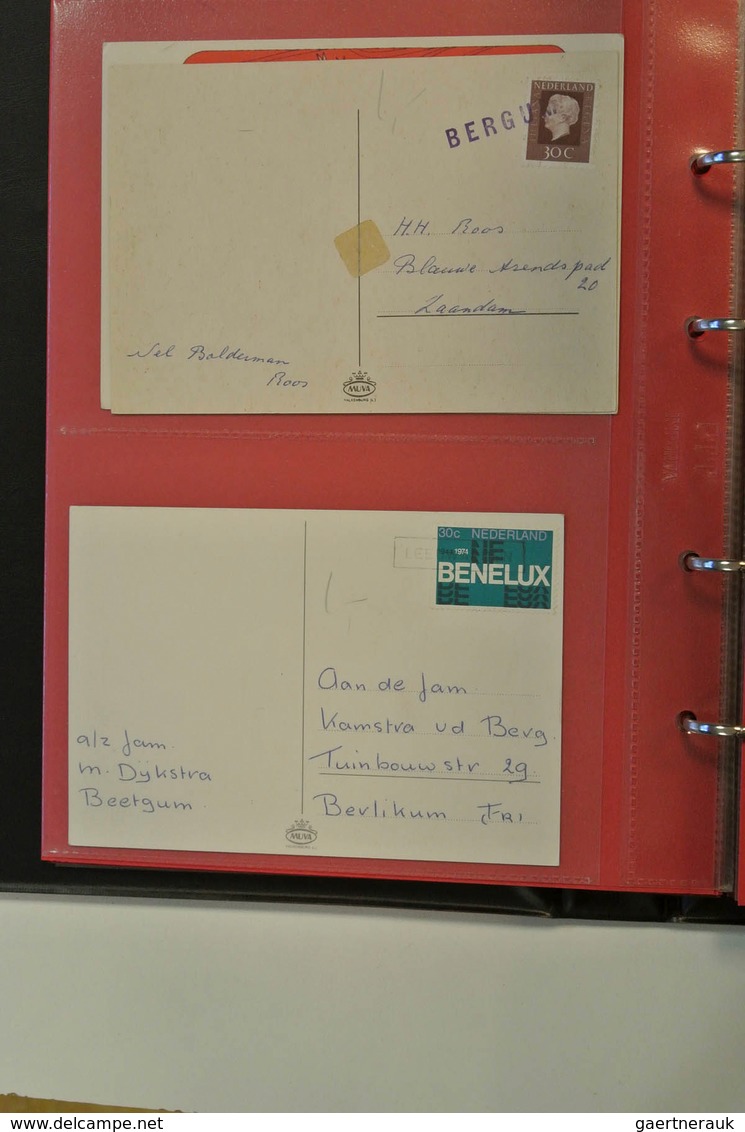 BERGU
NEDERLAND
30 C
H.H. Roos
Blauwe Arendspad
20
Zaandam
Nel Balderman
Roos
MUVA
VALKENBURG (L.)
30c NEDERLAND
1974
BENELUX
Aan de fam.
Kamstra vd Berg.
Tuinbouwstr 29.
Berlikum (FRI
a/z fam.
M. Dijkstra
Beetgum.
MUVA
VALKENBURG (L.)
Delcampe.net
gaertnerauk